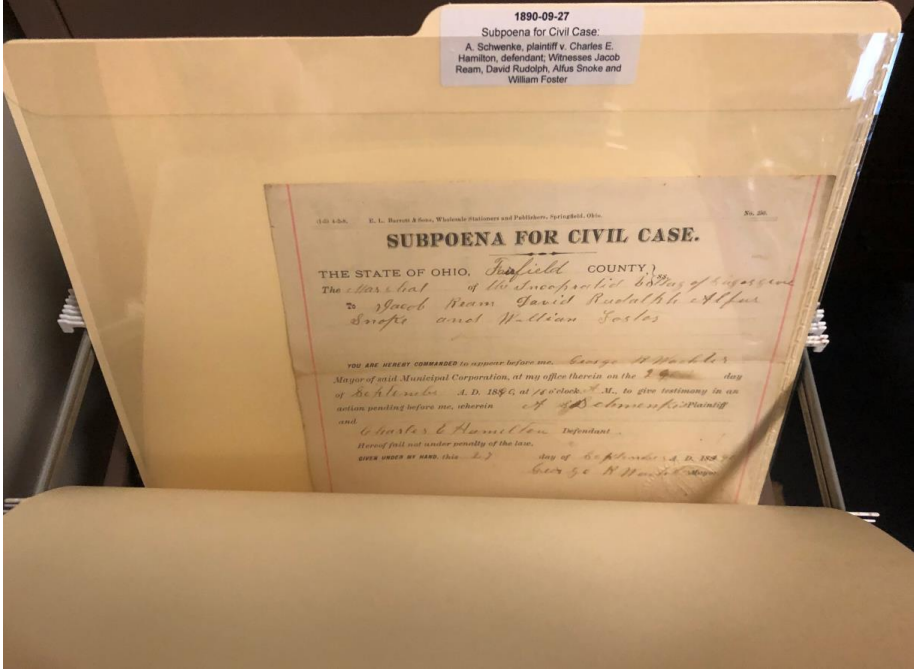 1890-09-27
Subpoena for Civil Case:
A. Schwenke, plaintiff v. Charles E.
Hamilton, defendant; Witnesses Jacob
Ream, David Rudolph, Alfus Snoke and
William Foster
E. L. Barrett & Sons, Wholesale Stationers and Publishers, Springfield, Ohio.
SUBPOENA FOR CIVIL CASE.
THE STATE OF OHIO, Fairfield COUNTY,
The Marshal of the
To Jacob Ream David Rudolph Alfus
Snoke and
YOU ARE HEREBY COMMANDED to appear before me, George
Mayor of said Municipal Corporation, at my office therein on the day
of September A. D. at o'clock M., to give testimony in an
action pending before me, wherein A Plaintiff
and
Charles E Hamilton Defendant.
Hereof fail not under penalty of the law.
GIVEN UNDER MY HAND, this 27 day of September A. D.
George Mayor